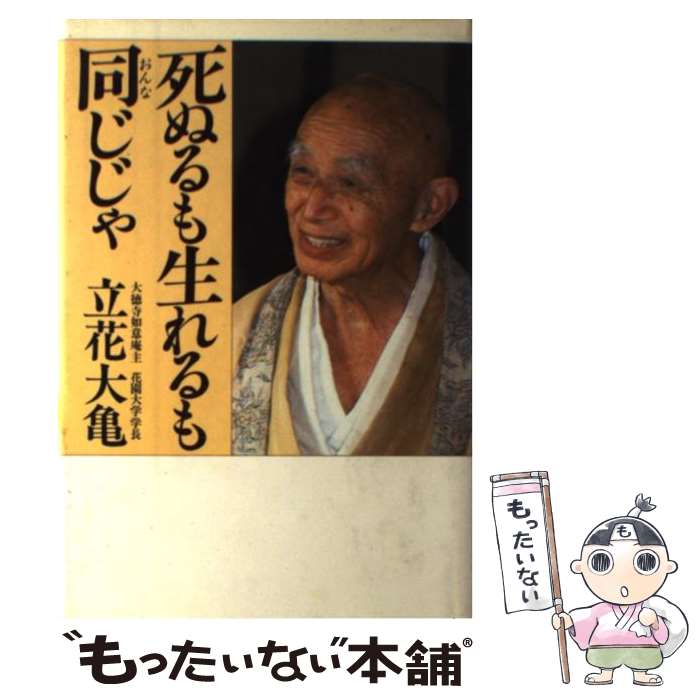 死ぬるも生れるも
同じじゃ
おんな
大徳寺如意庵主 花園大学学長
立花大亀
もったいない
も
"もったいない"本舗®